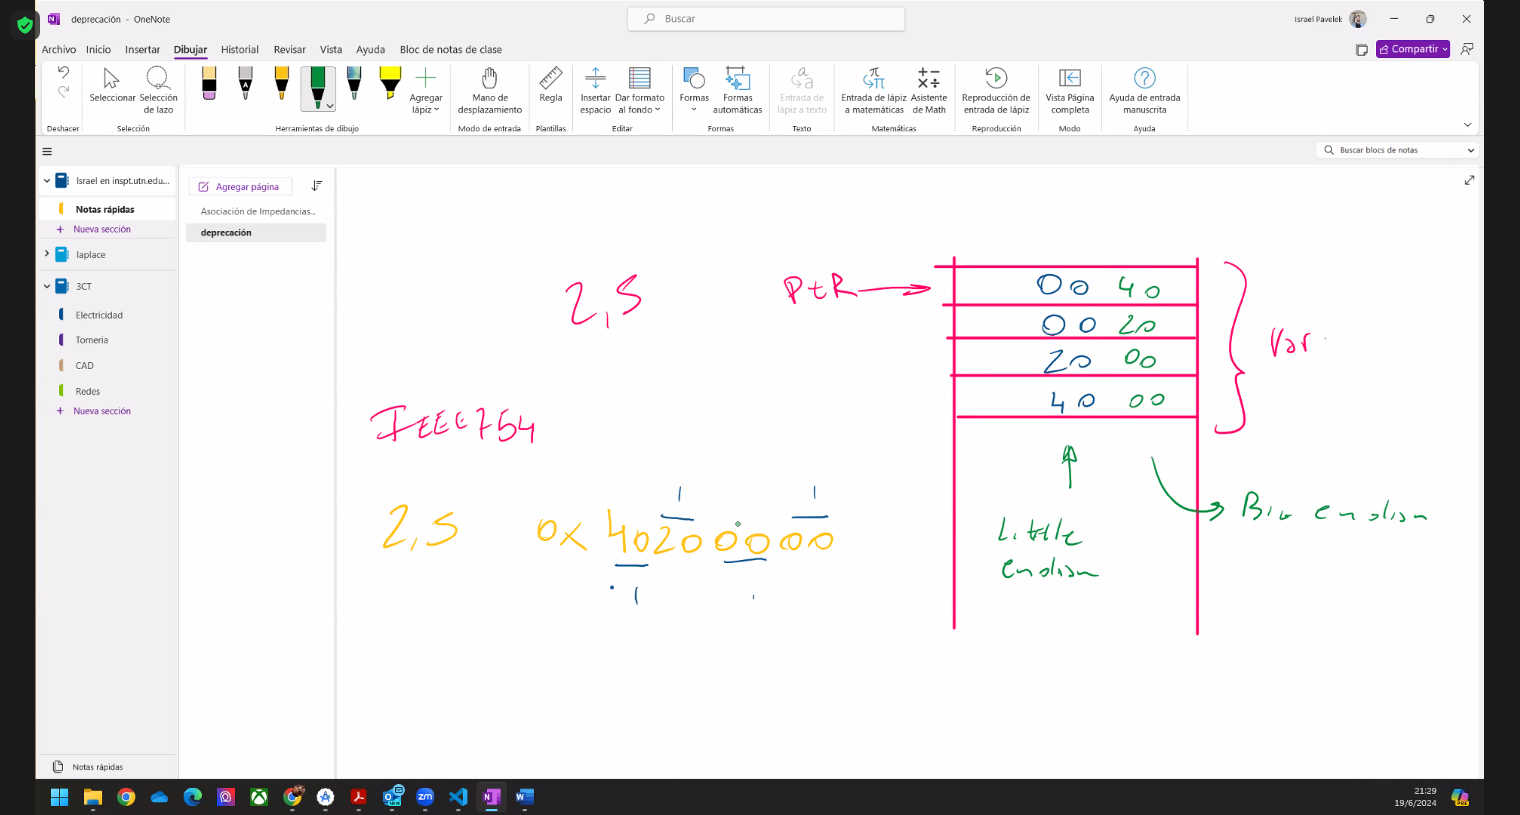 deprecación - OneNote
Buscar
Israel Pavelek
Archivo Inicio Insertar Dibujar Historial Revisar Vista Ayuda Bloc de notas de clase
Compartir
Deshacer
Seleccionar
Selección de lazo
Selección
A
Agregar lápiz
Herramientas de dibujo
Mano de desplazamiento
Modo de entrada
Regla
Plantillas
Insertar espacio
Dar formato al fondo
Editar
Formas
Formas automáticas
Formas
Entrada de lápiz a texto
Texto
Entrada de lápiz a matemáticas
Asistente de Math
Matemáticas
Reproducción de entrada de lápiz
Reproducción
Vista Página completa
Modo
Ayuda de entrada manuscrita
Ayuda
Buscar blocs de notas
Israel en inspt.utn.edu...
Notas rápidas
Nueva sección
laplace
3CT
Electricidad
Torneria
CAD
Redes
Nueva sección
Notas rápidas
Agregar página
Asociación de Impedancias...
deprecación
2,5
PtR
00 40
00 20
20 00
40 00
Var
IEEE754
2,5 0x 40200000
1 1
1
Little
endian
Big endian
21:29
19/6/2024